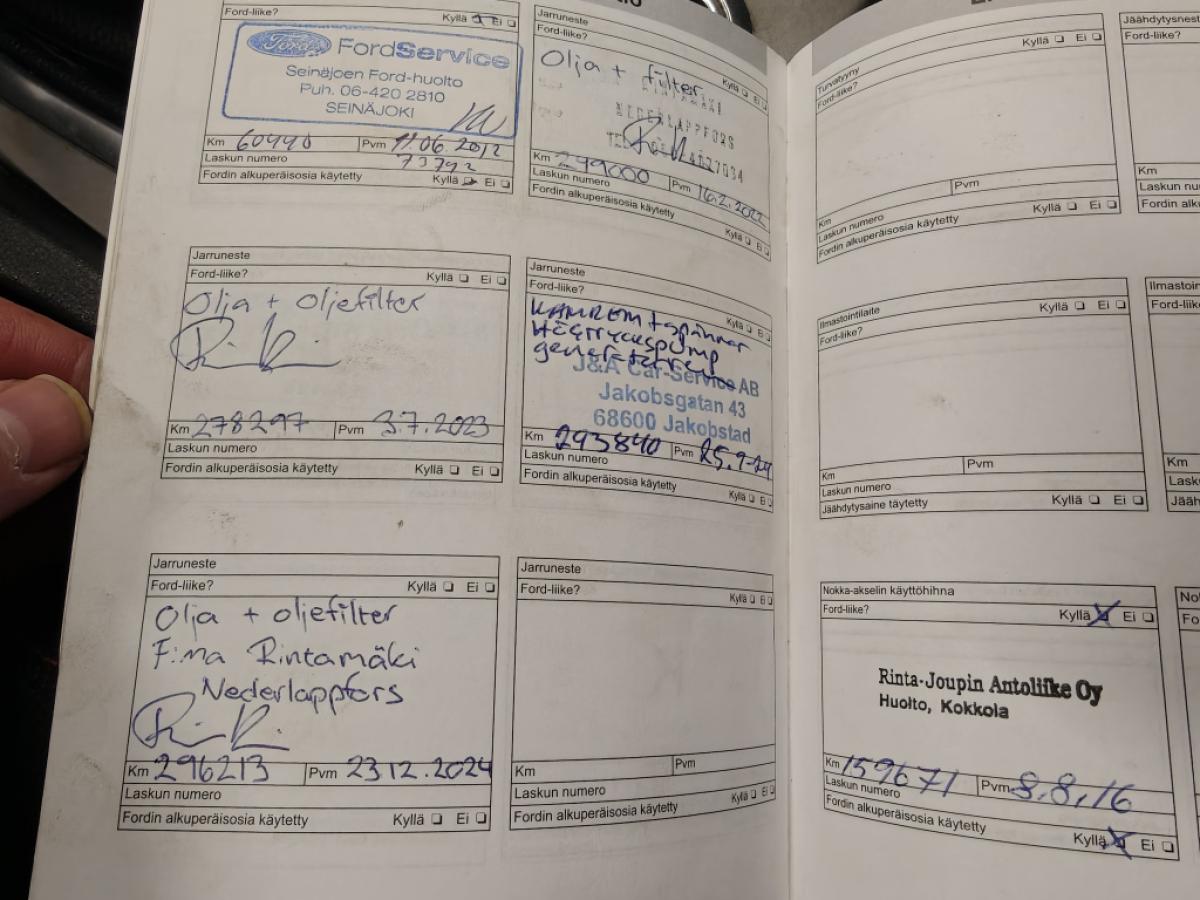 Ford-liike? Kyllä Ei
Ford FordService
Seinäjoen Ford-huolto
Puh. 06-420 2810
SEINÄJOKI
Km 60440 Pvm 11.06.2012
Laskun numero 73792
Fordin alkuperäisosia käytetty Kyllä Ei
Jarruneste
Ford-liike? Kyllä Ei
Olja + filter
NEDERLAPPFORS
Km 249000 Pvm 16.2.2022
Laskun numero
Fordin alkuperäisosia käytetty Kyllä Ei
Jarruneste
Ford-liike? Kyllä Ei
Olja + Oljefilter
Km 278297 Pvm 3.7.2023
Laskun numero
Fordin alkuperäisosia käytetty Kyllä Ei
Jarruneste
Ford-liike? Kyllä Ei
KAMREM + spännar
HÖGTRYCKSPUMP
J&A Car-Service AB
Jakobsgatan 43
68600 Jakobstad
Km 293840 Pvm 25.9-24
Laskun numero
Fordin alkuperäisosia käytetty Kyllä Ei
Jarruneste
Ford-liike? Kyllä Ei
Olja + oljefilter
F:ma Rintamäki
Nederlappfors
Km 296213 Pvm 23 12.2024
Laskun numero
Fordin alkuperäisosia käytetty Kyllä Ei
Jarruneste
Ford-liike? Kyllä Ei
Km Pvm
Laskun numero
Fordin alkuperäisosia käytetty Kyllä Ei
Kyllä Ei
Turvatyyny
Ford-liike?
Km Pvm
Laskun numero
Fordin alkuperäisosia käytetty Kyllä Ei
Ilmastointilaite
Ford-liike? Kyllä Ei
Km Pvm
Laskun numero
Jäähdytysaine täytetty Kyllä Ei
Nokka-akselin käyttöhihna
Ford-liike? Kyllä Ei
Rinta-Joupin Autoliike Oy
Huolto, Kokkola
Km 159671 Pvm 8.8.16
Laskun numero
Fordin alkuperäisosia käytetty Kyllä Ei
Jäähdytysnest
Ford-liike?
Km
Laskun nu
Fordin alku
Ilmastoin
Ford-liike
Km
Lask
Jääh
No
Fo